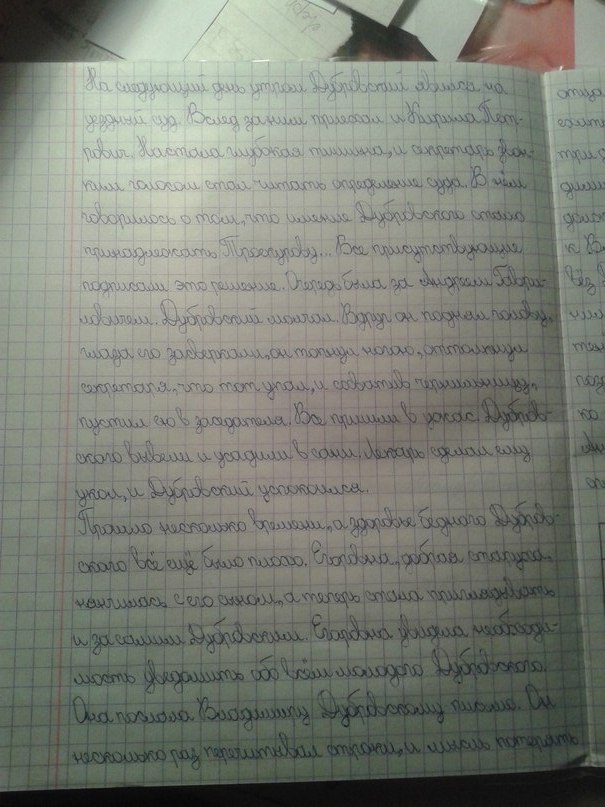 На следующий день утром Дубровский явился на
уездный суд. Вслед за ним приехал и Кирила Пет-
рович. Настала глубокая тишина, и секретарь звон-
ким голосом стал читать определение суда. В нём
говорилось о том, что имение Дубровского стало
принадлежать Троекурову... Все присутствующие
подписали это решение. Очередь была за Андреем Гаври-
ловичем. Дубровский молчал. Вдруг он поднял голову,
глаза его засверкали, он топнул ногою, оттолкнул
секретаря, что тот упал, и схватив чернильницу,
пустил ею в заседателя. Все пришли в ужас. Дубров-
ского вывели и усадили в сани. Лекарь сделал ему
укол, и Дубровский успокоился.
Прошло несколько времени, а здоровье бедного Дубров-
ского всё ещё было плохо. Егоровна, добрая старуха,
нянчилась с его сыном, а теперь стала приглядывать
и за самим Дубровским. Егоровна увидела необходи-
мость уведомить обо всём молодого Дубровского.
Она послала Владимиру Дубровскому письмо. Он
несколько раз перечитывал строки, и мысль потерять
отца
три
к
вёз
ко